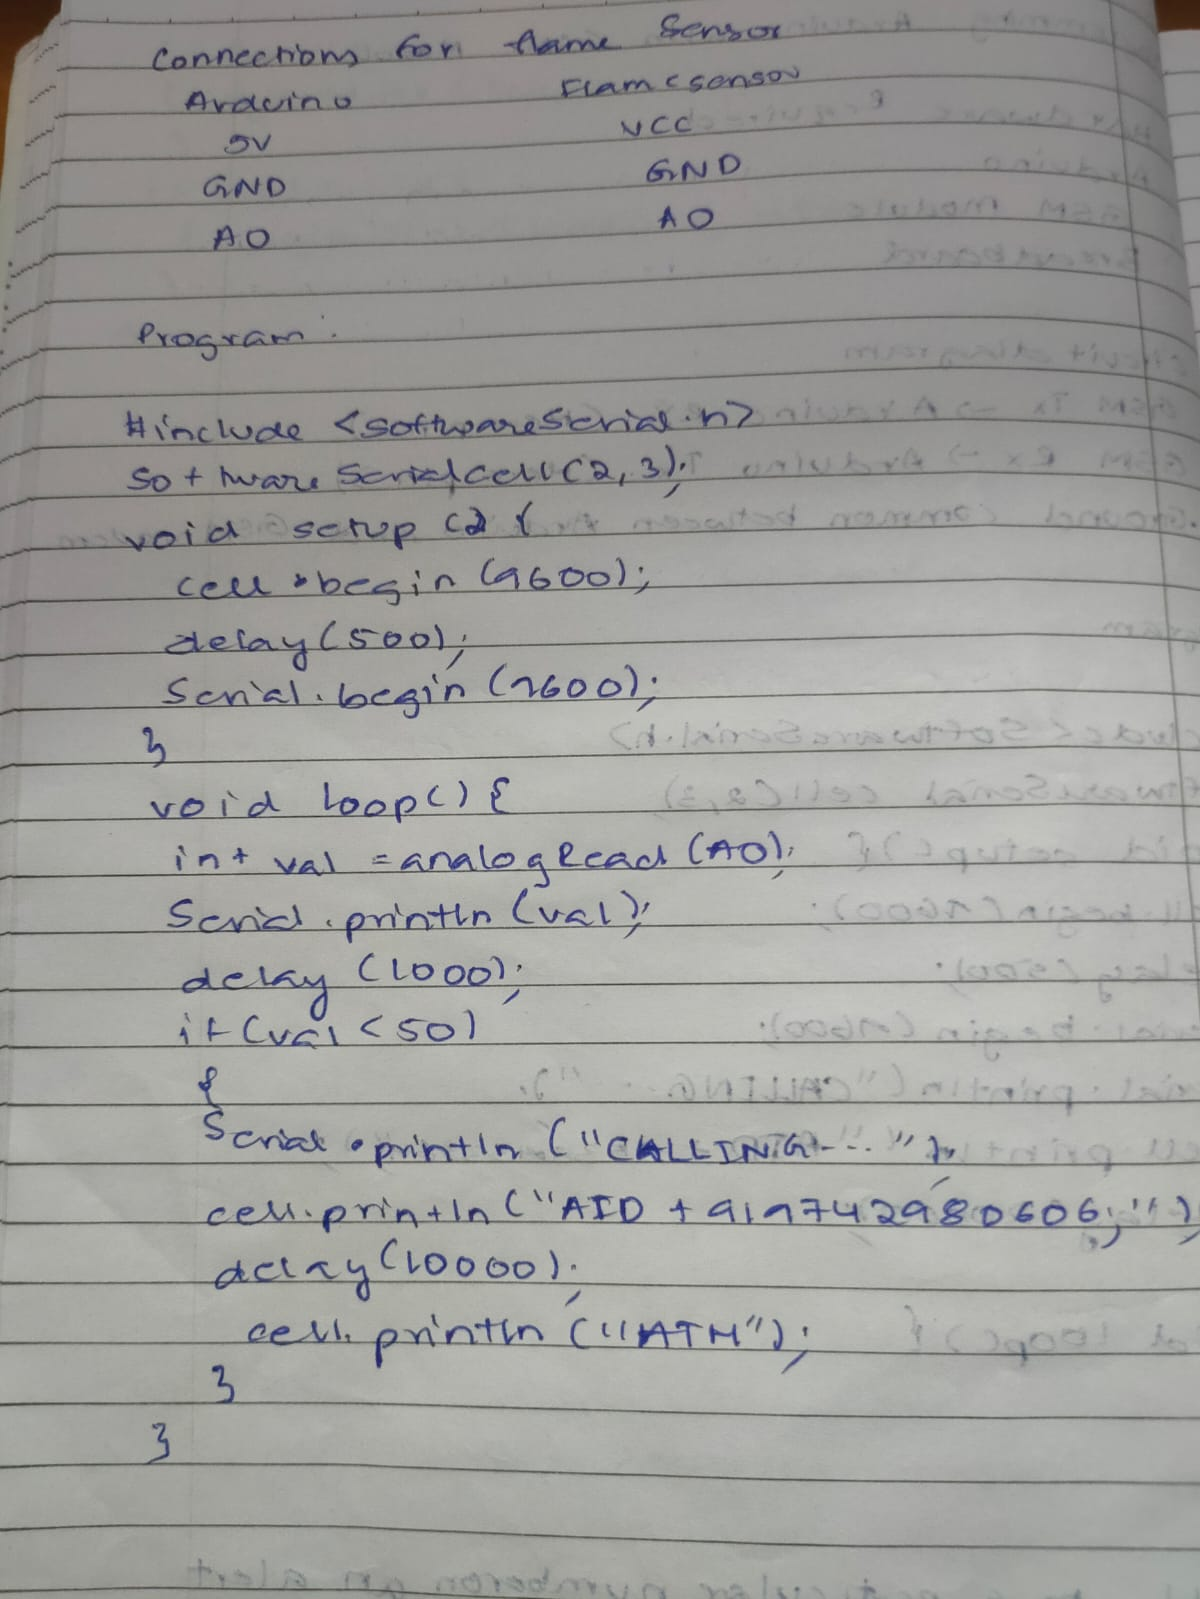 Connections for flame Sensor
Arduino Flame sensor
5V VCC
GND GND
A0 A0
Program:
#include <SoftwareSerial.h>
Software Serial cell (2,3);
void setup () {
cell.begin (9600);
delay (500);
Serial.begin (9600);
}
void loop() {
int val = analogRead (A0);
Serial.println (val);
delay (1000);
if (val < 50)
{
Serial.println ("CALLING---");
cell.println ("ATD +919742980606;");
delay (10000);
cell.println ("ATH");
}
}